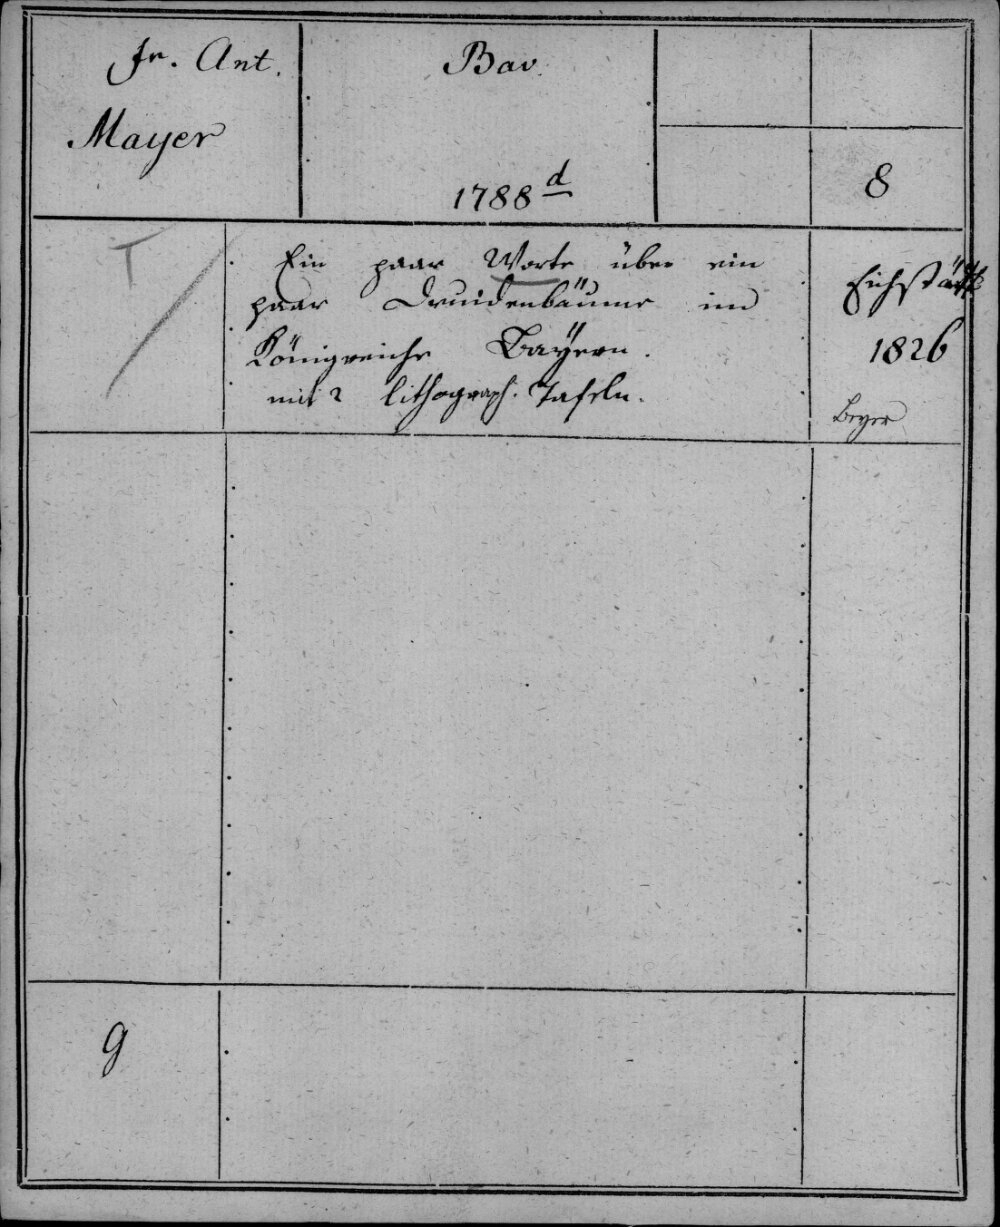 Fr. Ant.
Mayer
Bav.
1788 d
8
Ein paar Worte über ein
paar Druidenbäume im
Königreiche Bayern.
mit 2 lithograph. Tafeln.
Eichstädt
1826
Beyer
9